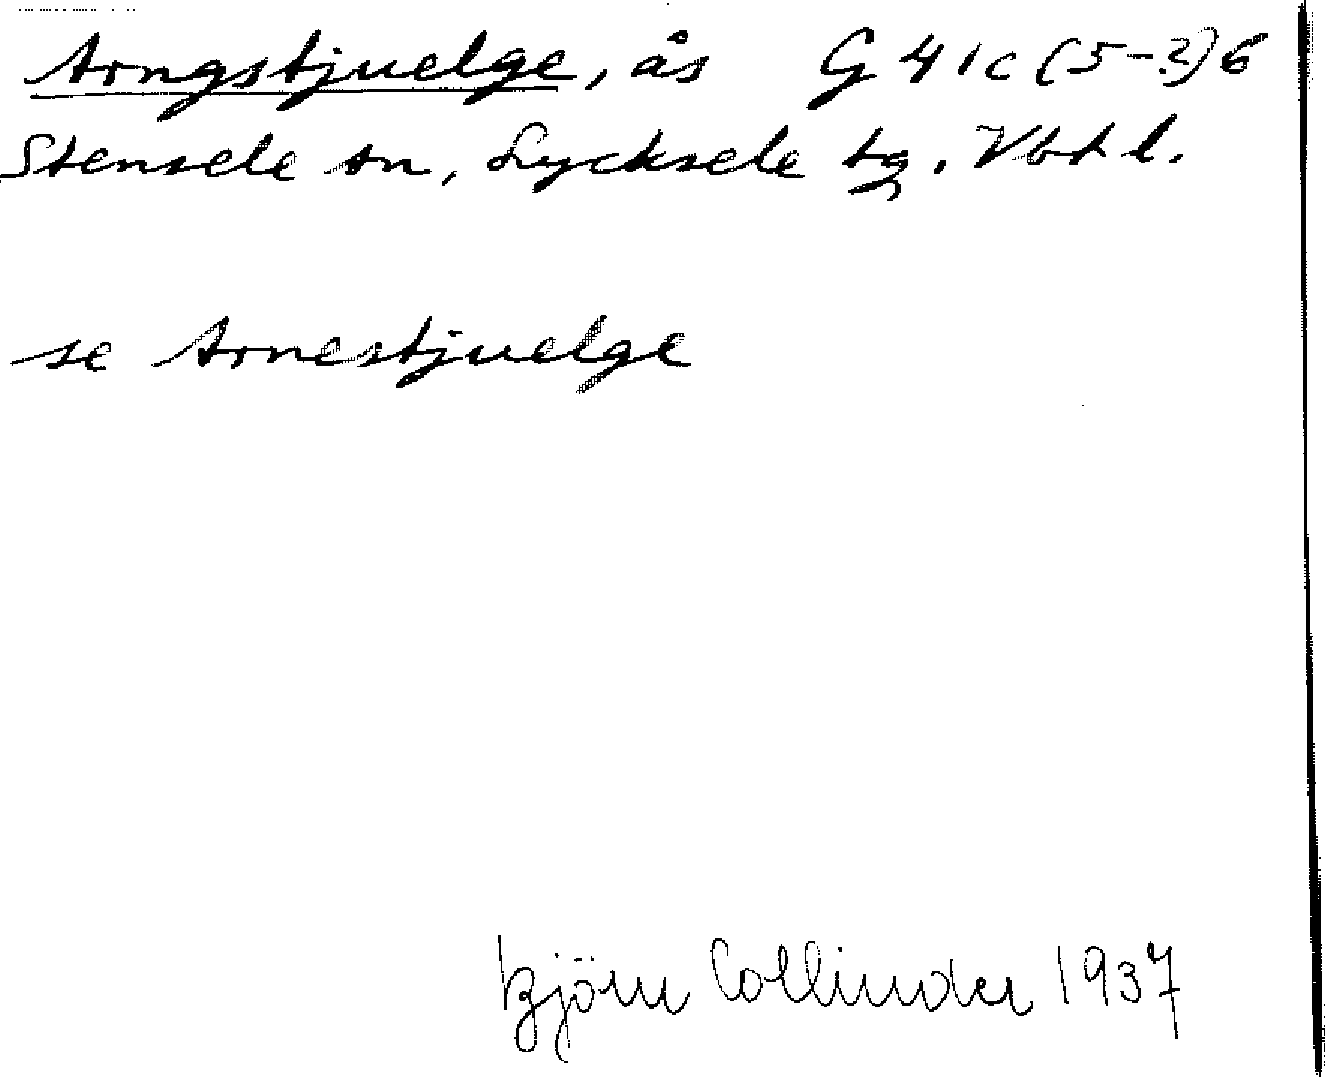 Arngstjuelge, ås G 41c (5-?)6
Stensele sn, Lycksele tg. Vbtl.
se Arnestjuelge
Björn Collinder 1937